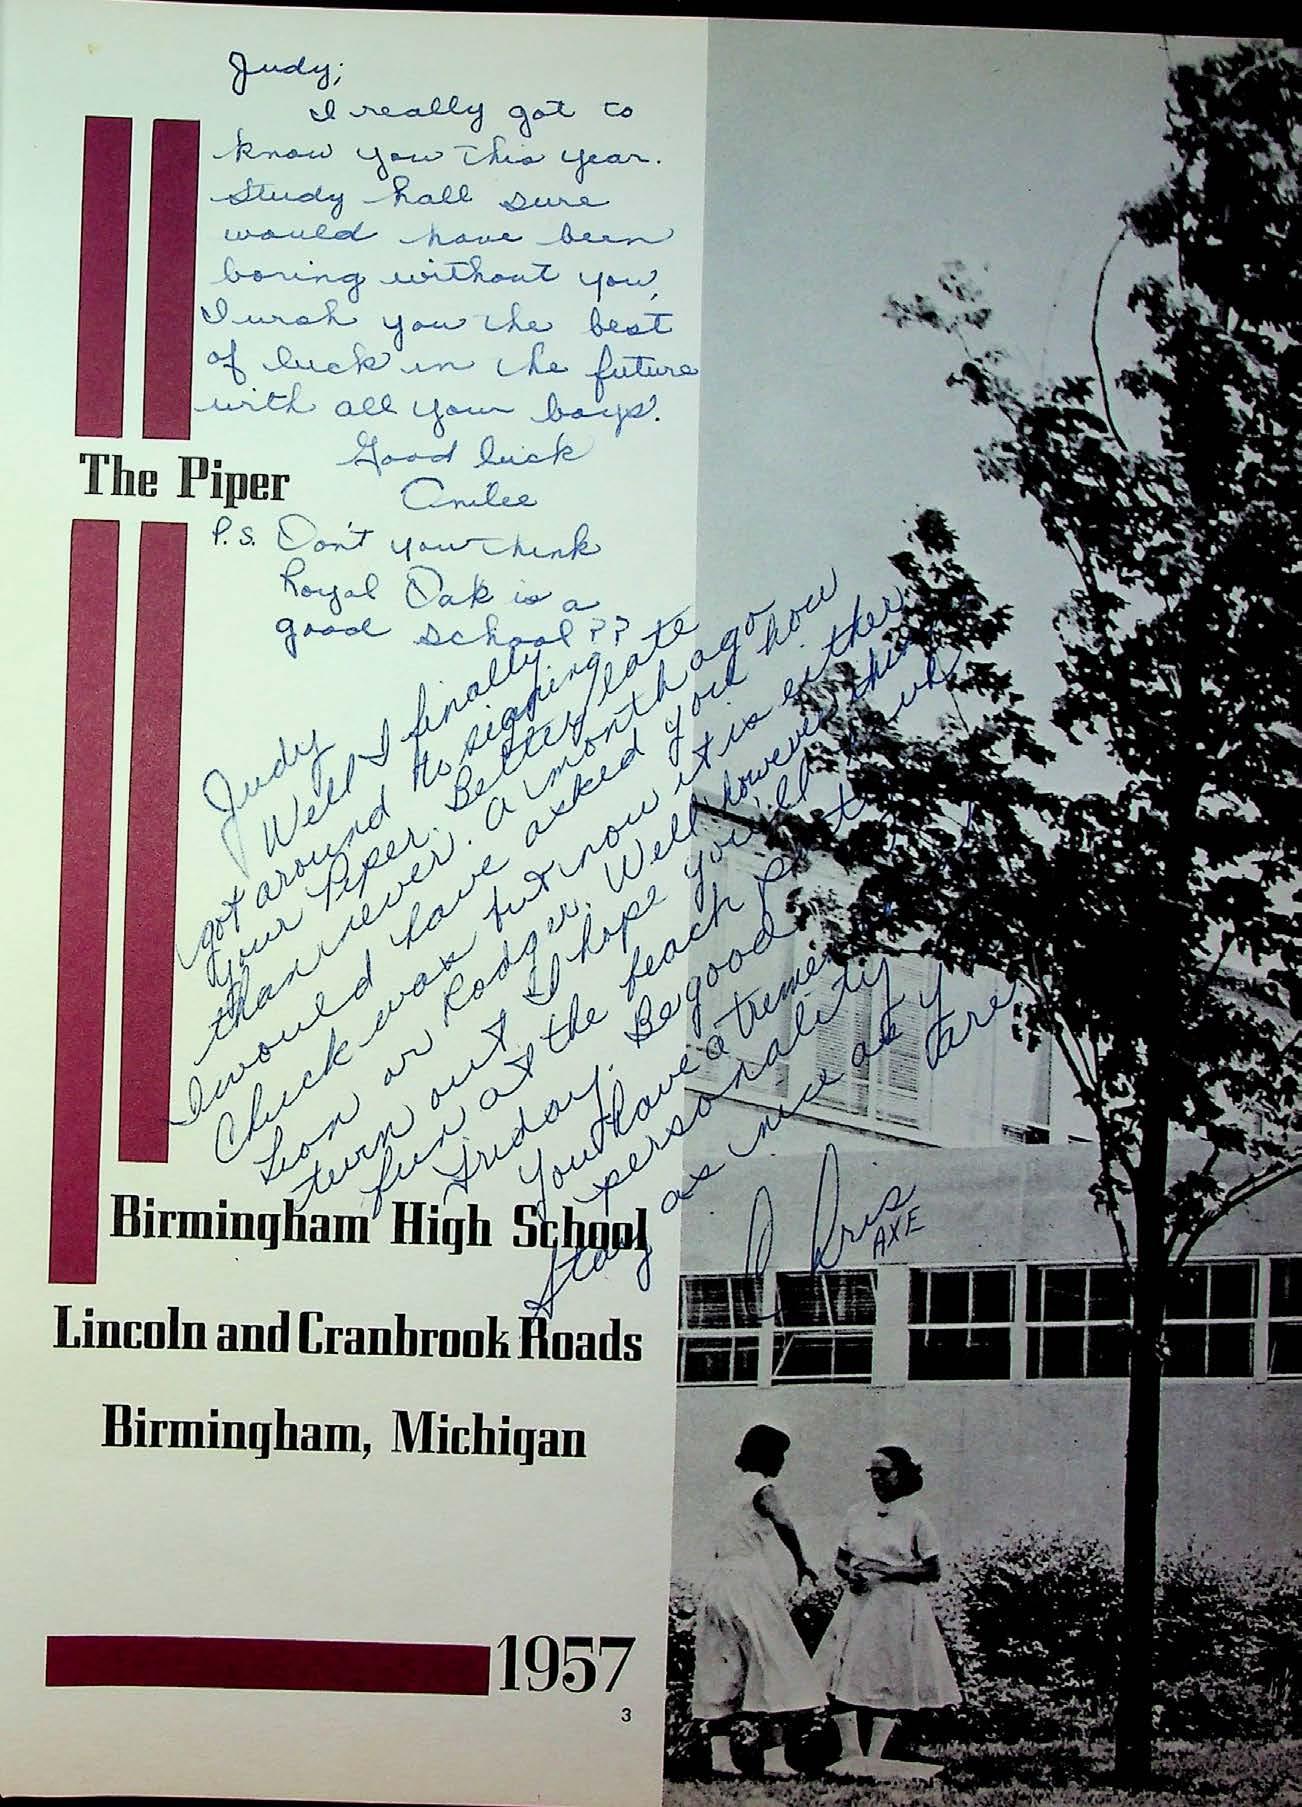 Judy;
I really got to
know you this year.
Study hall sure
would have been
boring without you,
I wish you the best
of luck in the future
with all your boys.
Good luck
P.S. Don't you think
Royal Oak is a
good school??
The Piper
Judy
Well I finally
got around to signing
your Piper. Better late
than never. A month ago
I would have asked you how
Chuck was but now it is either
Leon or Rodger. Well however things
turn out I hope you'll have
fun at the beach
Friday. Be good
You have a
personality
Stay as nice as you
are
Chris
AXE
Birmingham High School
Lincoln and Cranbrook Roads
Birmingham, Michigan
1957
3